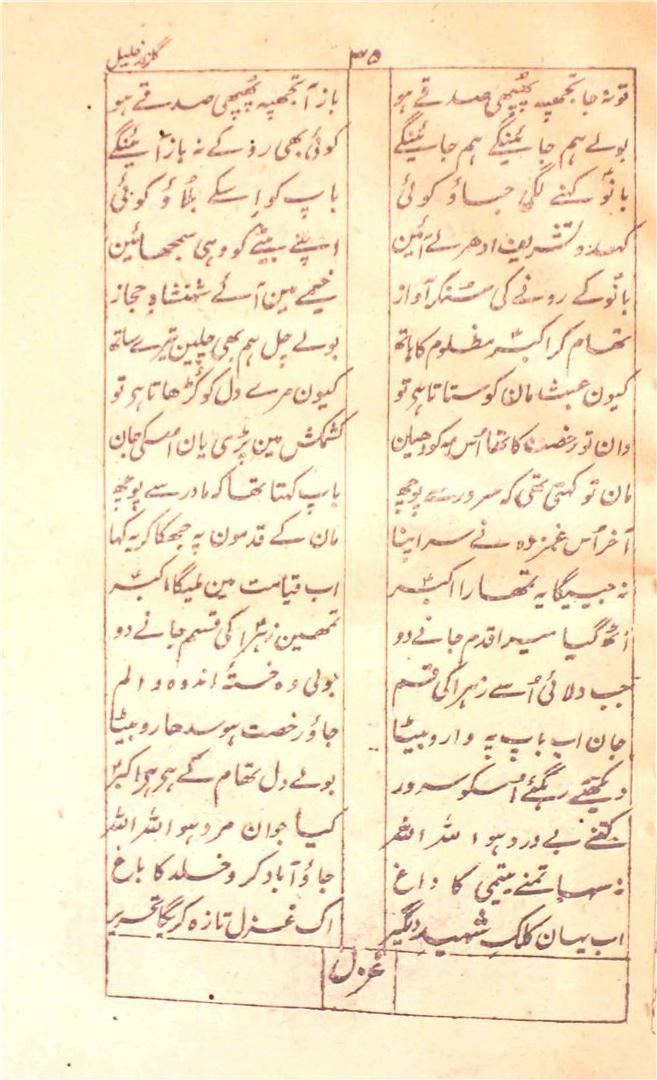 ۳۵
گلزار خلیل
تو نہ جا تجھپہ پھپھی صدقے ہو
باز آ تجھپہ پھپھی صدقے ہو
بولے ہم جائینگے ہم جائینگے
کوئی بھی روکے نہ باز آئینگے
بانو کہنے لگی جاؤ کوئی
باپ کو اسکے بلاؤ کوئی
کہدو تشریف ادھر لے آئین
اپنے بیٹے کو وہی سمجھائین
بانو کے رونے کی سنکر آواز
خیمے مین آئے شہنشاہ حجاز
تھام کر اکبر مظلوم کا ہاتھ
بولے چل ہم بھی چلین تیرے ساتھ
کیون عبث مان کو ستاتا ہر تو
کیون مرے دل کو کڑھاتا ہر تو
وان تو رخصت کا تھا اس مہ کو دھیان
کشمکش مین پڑی یان اسکی جان
مان تو کہتی تھی کہ سرور سے پوچھ
باپ کہتا تھا کہ مادر سے پوچھ
آخر اس غمزدہ نے سر اپنا
مان کے قدمون پہ جھکا کر یہ کہا
نہ جیے گا یہ تمھارا اکبر
اب قیامت مین ملیگا اکبر
اٹھ گیا میرا قدم جانے دو
تمھین زہرا کی قسم جانے دو
جب دلائی اُسے زہرا کی قسم
بولی وہ خستۂ اندوہ و الم
جان اب باپ پہ وارو بیٹا
جاؤ رخصت ہو سدھارو بیٹا
دیکھتے رہگئے اسکو سرور
بولے دل تھام کے ہر ہر اکبر
کتنے بے درد ہو اللہ اللہ
کیا جوان مرد ہو اللہ اللہ
نہ سہا تمنے یتیمی کا داغ
جاؤ آباد کرو خلد کا باغ
اب یہان کلک شہید دلگیر
اک غزل تازہ کریگا تحریر
غزل